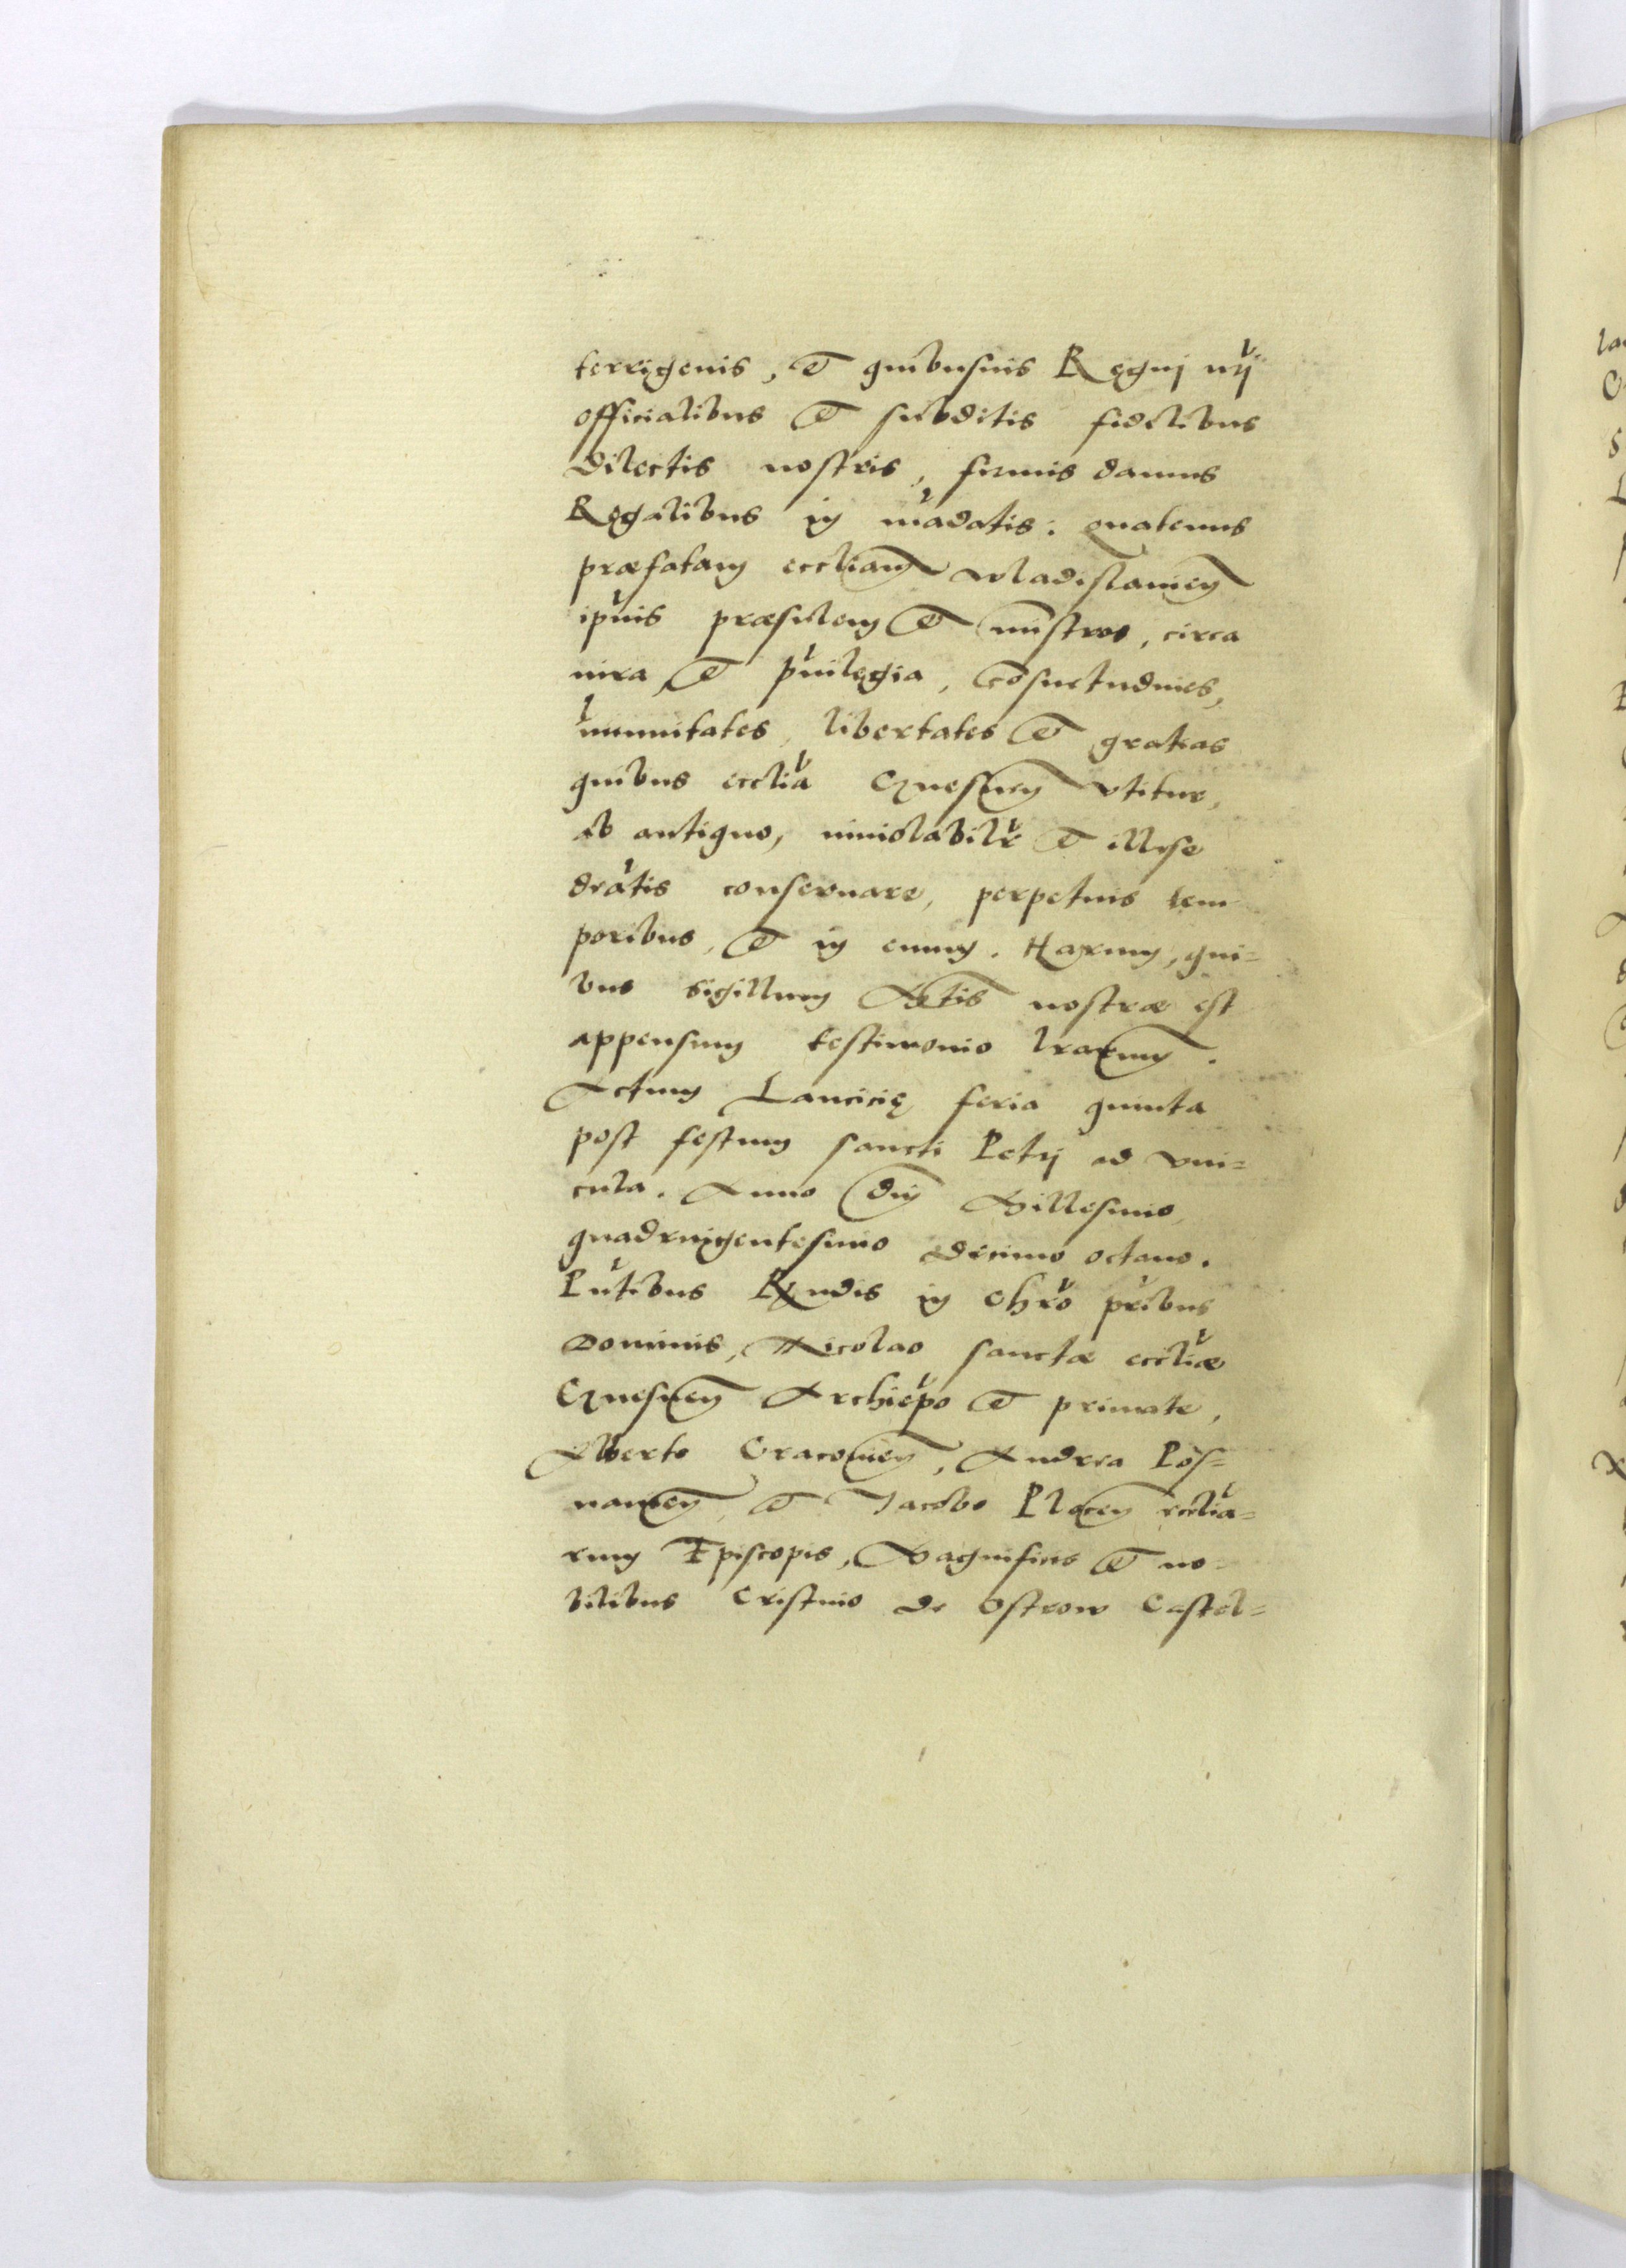 terrigenis, et quibusuis Regni nri
officialibus et subditis fidelibus
dilectis nostris, firmis damus
Regalibus in madatis. quatenus
præfatam eccliam Wladislauien
ipius præsulem et mistros, circa
iura et priuilegia, cosuetudines,
imunitates, libertates et gratias
quibus ecclia Gnesnen vtitur,
ab antiquo, inuiolabilr et illęse
debeatis conseruare, perpetuis tem
poribus, et in euum. Harum, qui=
bus sigillum Mtis nostræ est
appensum testimonio lrarum.
Actum Lancicię feria quinta
post festum sancti Petri ad vin=
cula. Anno dni Millesimo
quadringentesimo decimo octauo.
Pntibus Rndis in Chro pribus
Dominis, Nicolao sanctæ eccliæ
Gnesnen Archiepo et primate,
Alberto Cracouien, Andrea Pos=
nanien, et Jacobo Plocen ecclia=
rum Episcopis, Magnificis et no
bilibus Cristino de Ostrow Castel=